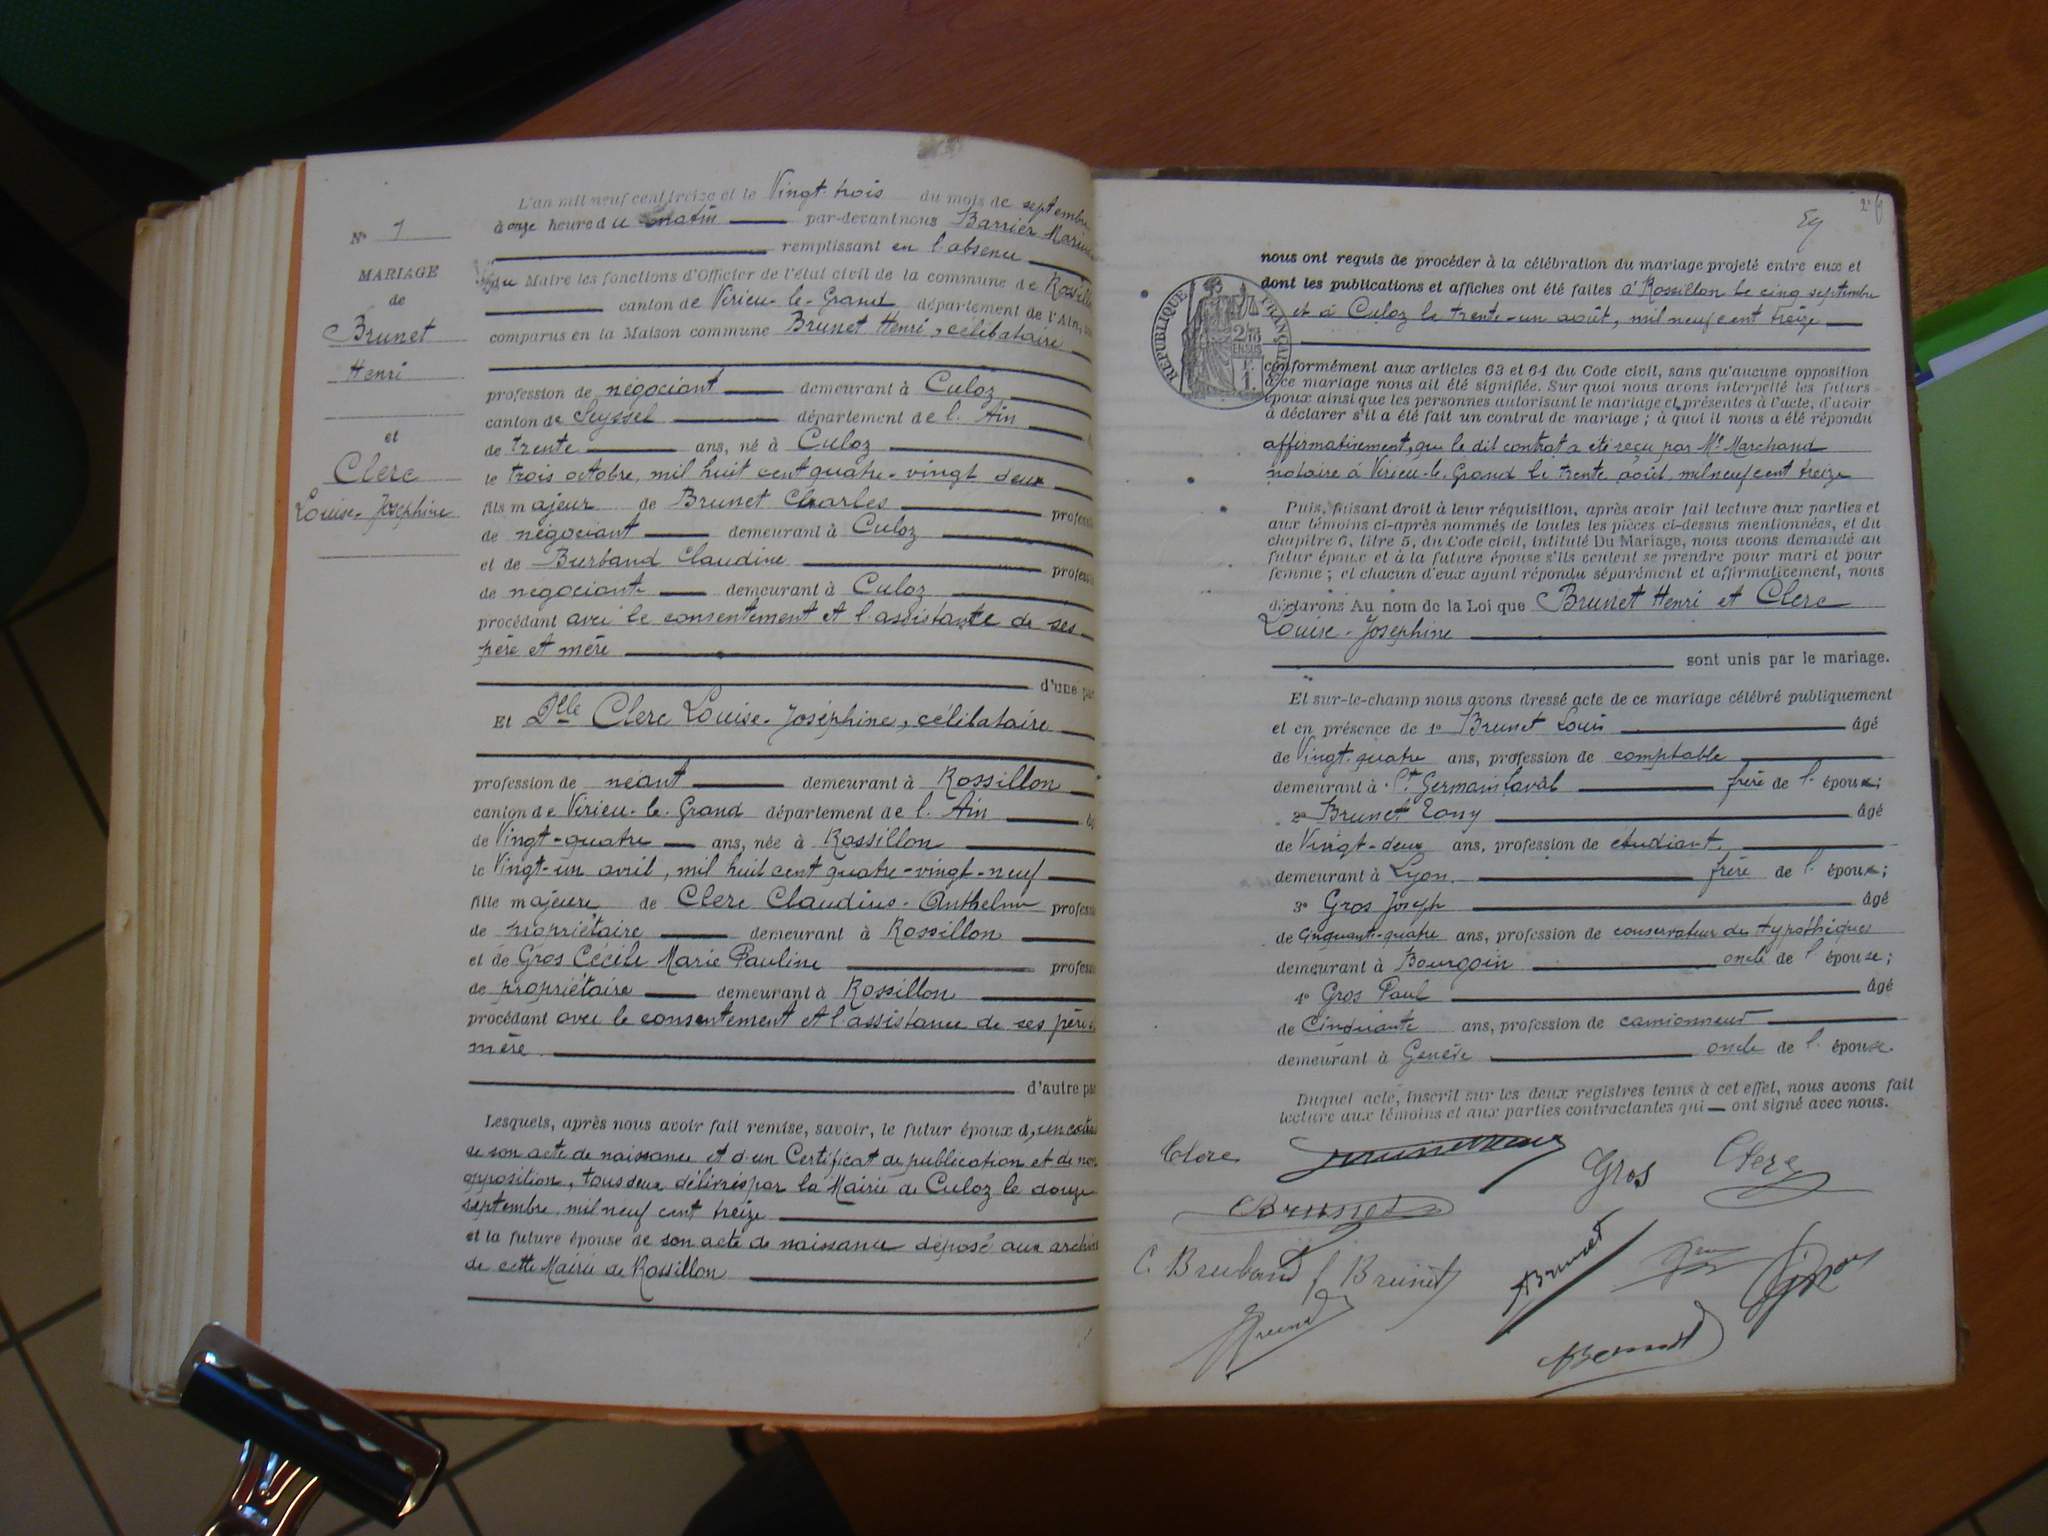 N° 7
MARIAGE
de
Brunet
Henri
et
Clerc
Louise-Joséphine
L'an mil neuf cent treize et le Vingt-trois du mois de septembre
à onze heure du matin par-devant nous Barrier
remplissant en l'absence
du Maire les fonctions d'Officier de l'état civil de la commune de
canton de Virieu-le-Grand département de l'Ain,
comparus en la Maison commune Brunet Henri, célibataire
profession de négociant demeurant à Culoz
canton de Seyssel département de l'Ain
de trente ans, né à Culoz
le trois octobre, mil huit cent quatre-vingt deux
fils majeur de Brunet Charles
de négociant demeurant à Culoz
et de Burband Claudine
de négociante demeurant à Culoz
procédant avec le consentement et l'assistante de ses
père et mère
d'une
Et Delle Clerc Louise-Joséphine, célibataire
profession de néant demeurant à Rossillon
canton de Virieu-le-Grand département de l'Ain
de Vingt-quatre ans, née à Rossillon
le Vingt-un avril, mil huit cent quatre-vingt-neuf
fille majeure de Clerc Claudius-Anthelme
de propriétaire demeurant à Rossillon
et de Gros Cécile Marie Pauline
de propriétaire demeurant à Rossillon
procédant avec le consentement et l'assistance de ses père
mère
d'autre
Lesquels, après nous avoir fait remise, savoir, le futur époux d'un
de son acte de naissance et d'un Certificat de publication et de non
opposition, tous deux délivrés par la Mairie de Culoz le douze
septembre mil neuf cent treize
et la future épouse de son acte de naissance déposé aux
de cette Mairie de Rossillon
nous ont requis de procéder à la célébration du mariage projeté entre eux et
dont les publications et affiches ont été faites à Rossillon le cinq septembre
et à Culoz le trente-un août, mil neuf cent treize
RÉPUBLIQUE FRANÇAISE
2/10 EN SUS
conformément aux articles 63 et 64 du Code civil, sans qu'aucune opposition
à ce mariage nous ait été signifiée. Sur quoi nous avons interpellé les futurs
époux ainsi que les personnes autorisant le mariage et présentes à l'acte, d'avoir
à déclarer s'il a été fait un contrat de mariage ; à quoi il nous a été répondu
affirmativement, que le dit contrat a été reçu par Me Marchand
notaire à Virieu-le-Grand le trente août, mil neuf cent treize
Puis, faisant droit à leur réquisition, après avoir fait lecture aux parties et
aux témoins ci-après nommés de toutes les pièces ci-dessus mentionnées, et du
chapitre 6, titre 5, du Code civil, intitulé Du Mariage, nous avons demandé au
futur époux et à la future épouse s'ils veulent se prendre pour mari et pour
femme ; et chacun d'eux ayant répondu séparément et affirmativement, nous
déclarons Au nom de la Loi que Brunet Henri et Clerc
Louise-Joséphine
sont unis par le mariage.
Et sur-le-champ nous avons dressé acte de ce mariage célébré publiquement
et en présence de 1° Brunet Louis âgé
de Vingt-quatre ans, profession de comptable
demeurant à St Germain Laval frère de l'époux;
2° Brunet Tony âgé
de Vingt-deux ans, profession de étudiant
demeurant à Lyon frère de l'époux;
3° Gros Joseph âgé
de Cinquante-quatre ans, profession de conservateur des Hypothèques
demeurant à Bourgoin oncle de l'épouse;
4° Gros Paul âgé
de Cinquante ans, profession de camionneur
demeurant à Genève oncle de l'épouse.
Duquel acte, inscrit sur les deux registres tenus à cet effet, nous avons fait
lecture aux témoins et aux parties contractantes qui ont signé avec nous.
Clerc Gros Clerc
Brunet
C. Bruband f Brunet Brunet